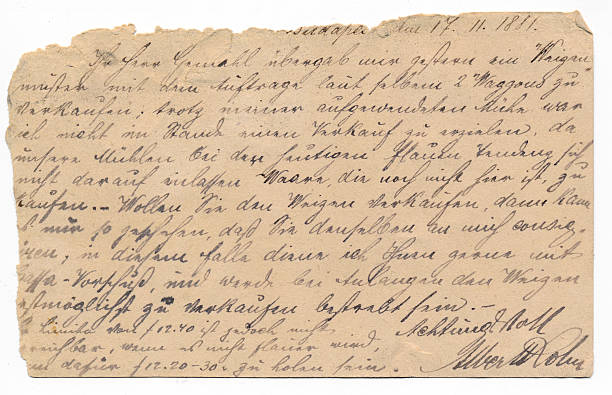 Budapest den 17. 11. 1881.
Ihr Herr Gemahl übergab mir gestern ein Weizen
muster mit dem Auftrage laut selbem 2 Waggons zu
verkaufen; trotz meiner aufgewendeten Mühe war
ich nicht im Stande einen Verkauf zu erzielen, da
unsere Mühlen bei der heutigen flauen Tendenz sich
nicht darauf einlassen Waare, die noch nicht hier ist, zu
kaufen. — Wollen Sie den Weizen verkaufen, dann kann
es nur so geschehen, daß Sie denselben an mich consig-
iren; in diesem Falle diene ich Ihnen gerne mit
assa-Vorschuß, und werde bei Anlangen den Weizen
estmöglichst zu verkaufen bestrebt sein. —
Limito von f 12.40 ist jedoch nicht
Achtungsvoll
reichbar, wenn es nicht flauer wird
dafür f 12.20-30. zu holen sein.
Albert